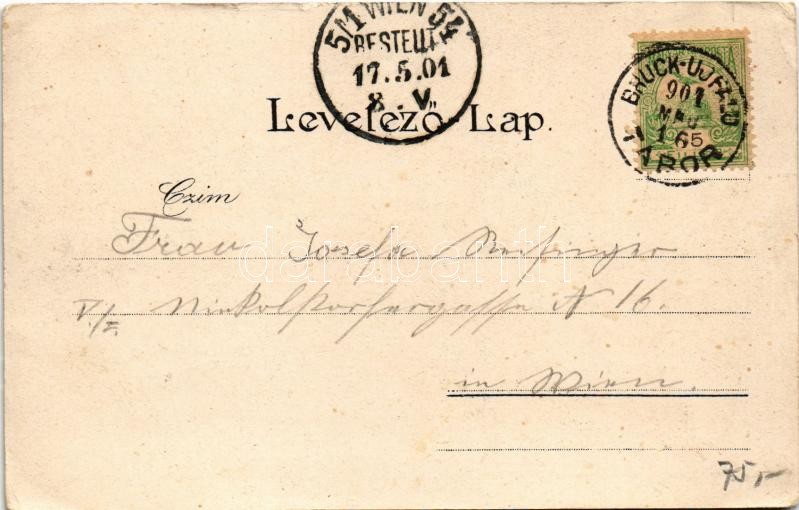 5/1 WIEN 54
BESTELLT
17.5.01
8.V
BRUCK-UJFALU
901
MAJ
TÁBOR
Levelező-Lap.
Czim
Frau Josefa
V/2 Nikolsdorfergasse N 16.
in Wien.
darabanth
75,-